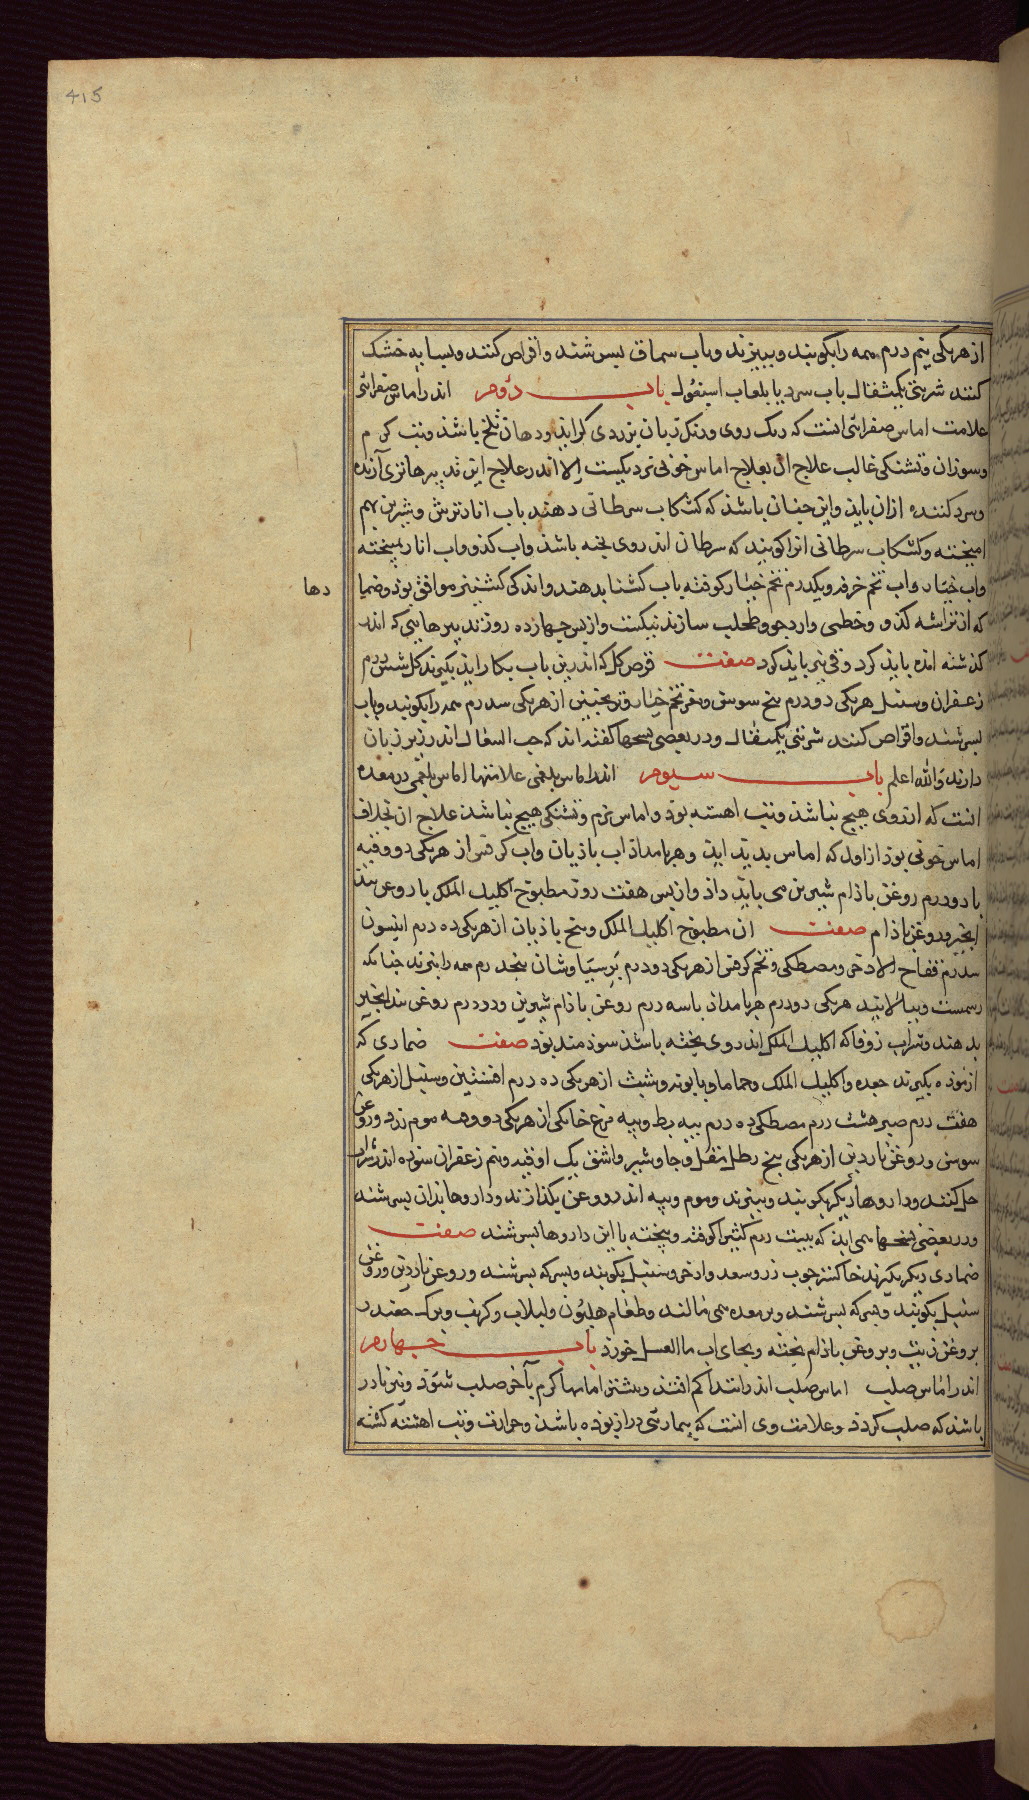 415
از هر یکی نیم درم همه را بکوبند و ببیزند و باب سماق بسرشند و اقراص کنند و بسایه خشک
کنند شربتی یکمثقال باب سرد یا بلعاب اسپغول باب دوم اندر اماس صفرائی
علامت اماس صفرائی انست که رنک روی و رنک زبان بزردی کراید و دهان تلخ باشد و تب کرم
و سوزان و تشنکی غالب علاج ان بعلاج اماس خونی نزدیکست الا اندر علاج این تدبیرها تری آرنده
و سرد کننده ازان باید و این چنان باشد که کشکاب سرطانی دهند باب انار ترش و شیرین بهم
امیخته و کشکاب سرطانی انرا کویند که سرطان اندر وی پخته باشد واب کدو واب انار بهم پخته
واب خیار واب تخم خرفه و یکدرم تخم خیار کوفته باب کسنا بدهند واندکی کشنیز موافق بود و ضمادها
که از تراشه کدو و خطمی و ارد جو و طحلب سازند نیکست و از پس چهارده روز تدبیرهایی که اندر
کذشته اند بباید کرد و قی نیز باید کرد صفت قرص کل که اندرین باب بکار اید بکیرند کل شش درم
زعفران و سنبل هر یکی دو درم بیخ سوسن و مغز تخم خیار و ترنجبین از هر یکی سه درم همه را بکوبند و باب
بسرشند و اقراص کنند شربتی یکمثقال و در بعضی نسخها کفته اند که حب السعال اندر زیر زبان
دارند والله اعلم باب سیوم اندر اماس بلغمی علامتهای اماس بلغمی در معده
انست که ارزوی هیچ نباشد و تب اهسته بود و اماس نرم و تشنکی هیچ نباشد علاج ان بخلاف
اماس خونی بود از اول که اماس پدید اید و هر بامداد اب بادیان واب کرفس از هر یکی دو وقیه
با دو درم روغن بادام شیرین می باید داد و از پس هفت روز مطبوخ اکلیل الملک با روغن بید
انجیر و روغن بادام صفت ان مطبوخ اکلیل الملک و بیخ بادیان از هر یکی ده درم انیسون
سه درم فقاح الاذخر و مصطکی و تخم کرفس از هر یکی دو درم برسیاوشان پنجدرم همه را بپزند چنانکه
رسمست و بپالایند هر یکی دو درم هر بامداد با سه درم روغن بادام شیرین و دو درم روغن بید انجیر
بدهند و شراب زوفا که اکلیل الملک اندر وی پخته باشند سودمند بود صفت ضمادی که
ازموده بکیرند جعده و اکلیل الملک و حماما و بابونه و شبت از هر یکی ده درم افسنتین و سنبل از هر یکی
هفت درم صبر هشت درم مصطکی ده درم پیه بط و پیه مرغ خانکی از هر یکی دو وقیه موم زرد و روغن
سوسن و روغن ناردین از هر یکی پنج رطل مقل و جاوشیر و اشق یک اوقیه و نیم زعفران سوده اندر شراب
حل کنند و داروهای دیکر بکوبند و ببیزند و موم و پیه اندر روغن بکذازند و داروها بدان بسرشند
و در بعضی نسخها می اید که بیست درم کثیرا کوفته و پخته با این داروها بسرشند صفت
ضمادی دیکر بکیرند خاکستر چوب زر و سعد و اذخر و سنبل بکوبند و بسرکه بسرشند و روغن ناردین و روغن
سنبل بکوبند و بسرکه بسرشند و بر معده می مالند و طعام هلیون و لبلاب و کرنب و برک چقندر
بروغن زیت و بروغن بادام پخته و بجای اب ماالعسل خورد باب چهارم
اندر اماس صلب اماس صلب اندر ابتدا کم افتد و بیشتر اماسها کرم بآخر صلب شود و نیز نادر
باشد که صلب کردد و علامت وی انست که بیماری دراز بوده باشد و حرارت و تب اهسته کشته